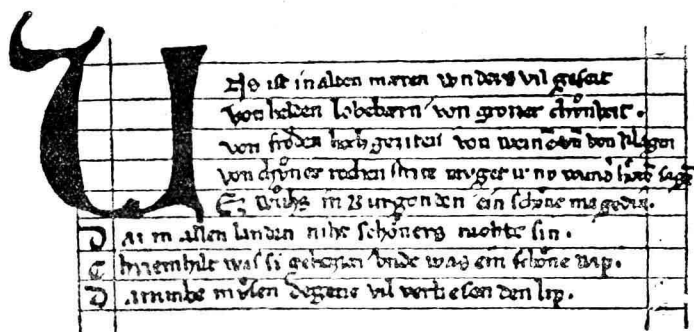 UNs ist in alten mæren wnders vil geseit
von helden lobebærn von grozer chůnheit.
von froden hochgeziten von weinē vñ von klagen
von chůner rechen strite muget ir nv wund̄ hörē sagē
Ez wůhs in Burgonden ein schöne magedin.
Daz in allen landen niht schöners mohte sin.
Chriemhilt was si geheizen vnde was ein schöne wip.
Darumbe můsen degene vil verliesen den lip.